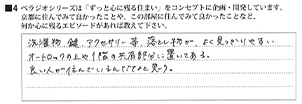 ■4 ベラジオシリーズは「ずっと心に残る住まい」をコンセプトに企画・開発しています。
京都に住んでみて良かったことや、この部屋に住んでみて良かったことなど、
何か心に残るエピソードがあれば教えて下さい。
洗濯物、鍵、アクセサリー等、落とし物が、よく見つかりやすい。
オートロックの上や1階の共有部分に置いてある。
良い人が住んでいるんだなと思う。